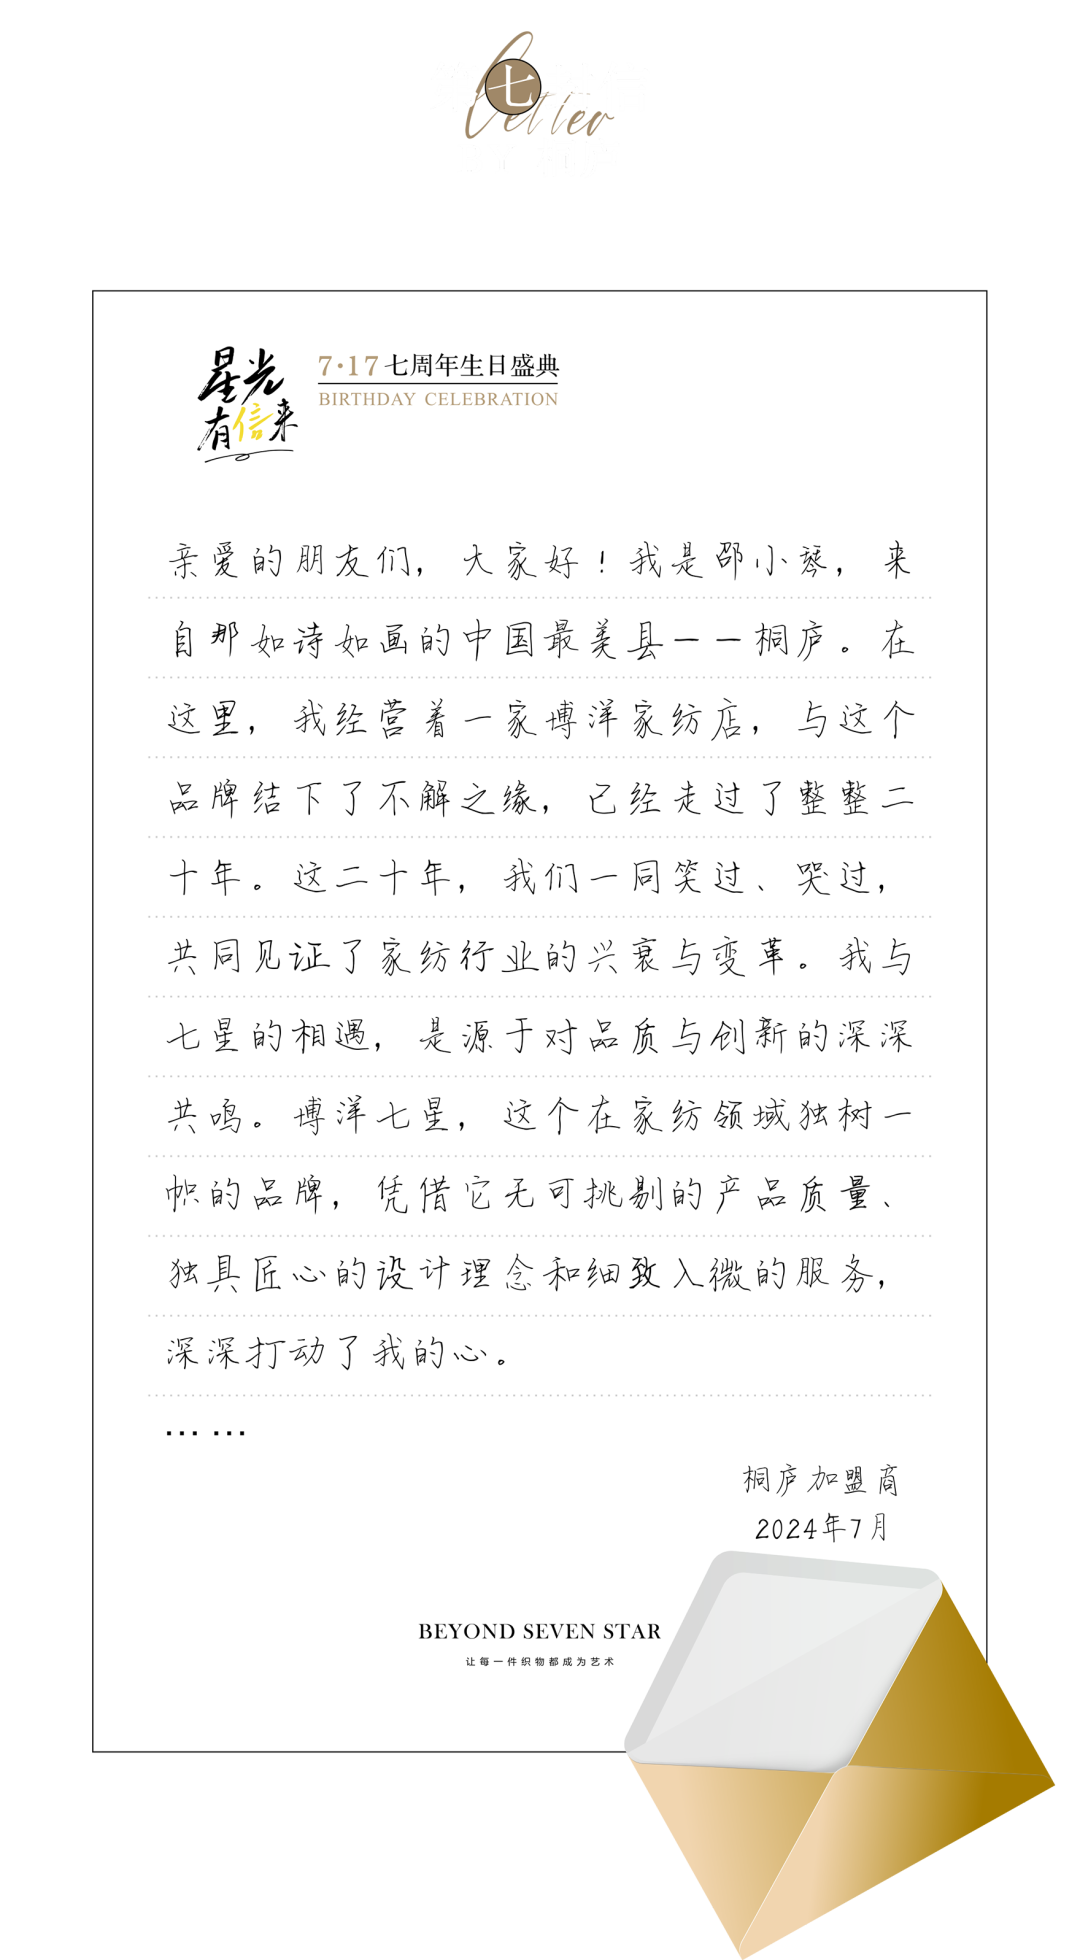 七
Letter
星光
有信来
7·17七周年生日盛典
BIRTHDAY CELEBRATION
亲爱的朋友们，大家好！我是邵小琴，来
自那如诗如画的中国最美县——桐庐。在
这里，我经营着一家博洋家纺店，与这个
品牌结下了不解之缘，已经走过了整整二
十年。这二十年，我们一同笑过、哭过，
共同见证了家纺行业的兴衰与变革。我与
七星的相遇，是源于对品质与创新的深深
共鸣。博洋七星，这个在家纺领域独树一
帜的品牌，凭借它无可挑剔的产品质量、
独具匠心的设计理念和细致入微的服务，
深深打动了我的心。
… …
桐庐加盟商
2024年7月
BEYOND SEVEN STAR
让每一件织物都成为艺术